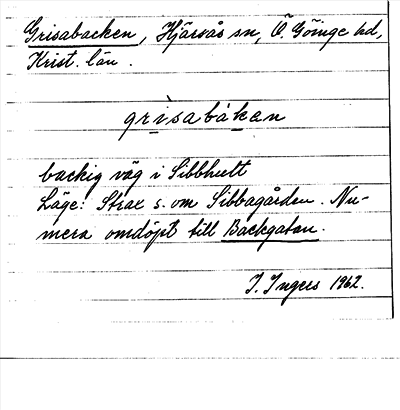 Grisabacken, Hjärsås sn, Ö. Göinge hd,
Krist. län.
grìsabákan
backig väg i Sibbhult
Läge: Strax s. om Sibbagården. Nu-
mera omdöpt till Backgatan.
I. Ingers 1962.